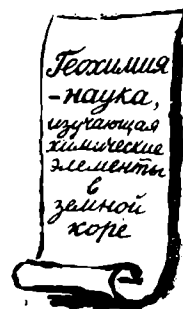 Геохимия
-наука,
изучающая
химические
элементы
в
земной
коре